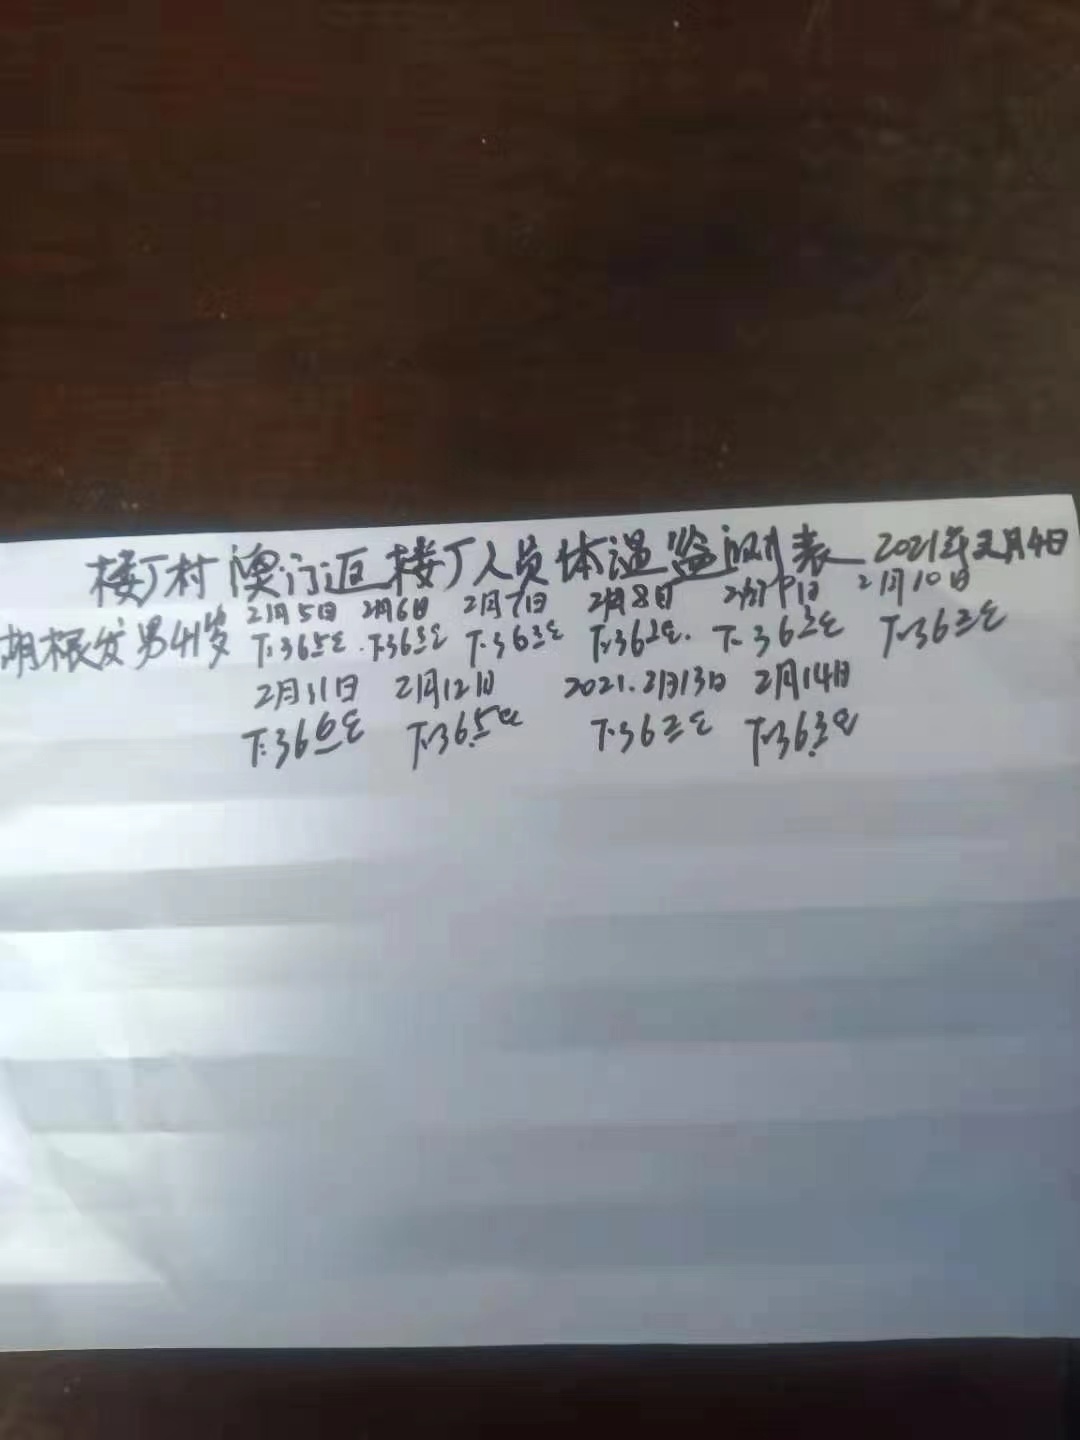 楼丁村澳门返楼丁人员体温监测表 2021年2月4日
胡根发 男41岁 2月5日 2月6日 2月7日 2月8日 2月9日 2月10日
T:365℃ T:363℃ T:363℃ T:362℃ T:362℃ T:363℃
2月11日 2月12日 2021.2月13日 2月14日
T:360℃ T:36.5℃ T:362℃ T:36.3℃